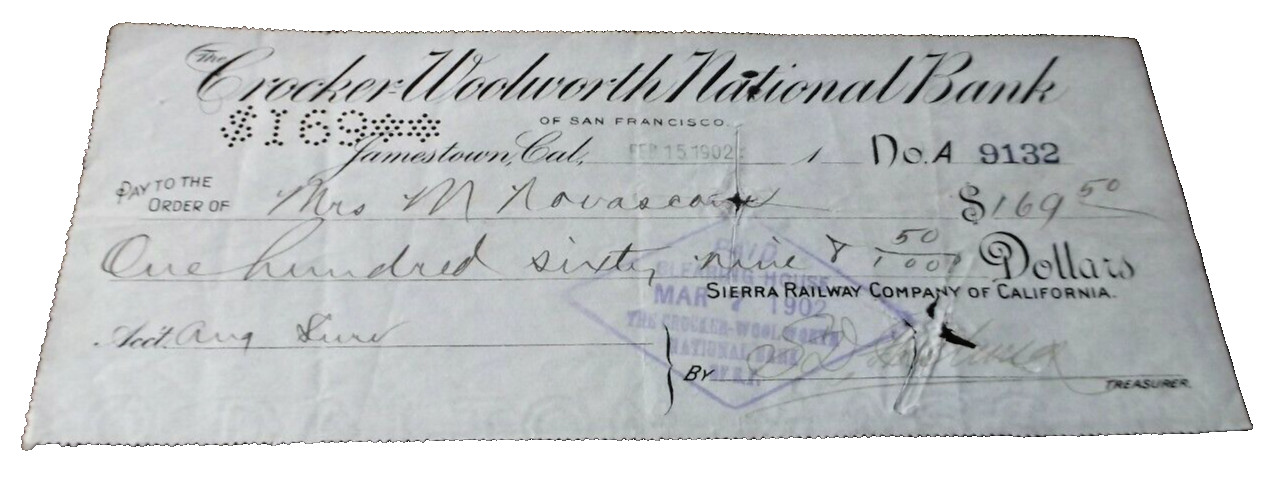 The Crocker-Woolworth National Bank
OF SAN FRANCISCO.
$169**
Jamestown, Cal., FEB 15 1902 1 No. A 9132
PAY TO THE ORDER OF Mrs M $169 50
One hundred sixty nine & 50/100 Dollars
SIERRA RAILWAY COMPANY OF CALIFORNIA.
PAID
CLEARING HOUSE
MAR 7 1902
THE CROCKER-WOOLWORTH
NATIONAL BANK
Acct. Aug
BY
TREASURER.